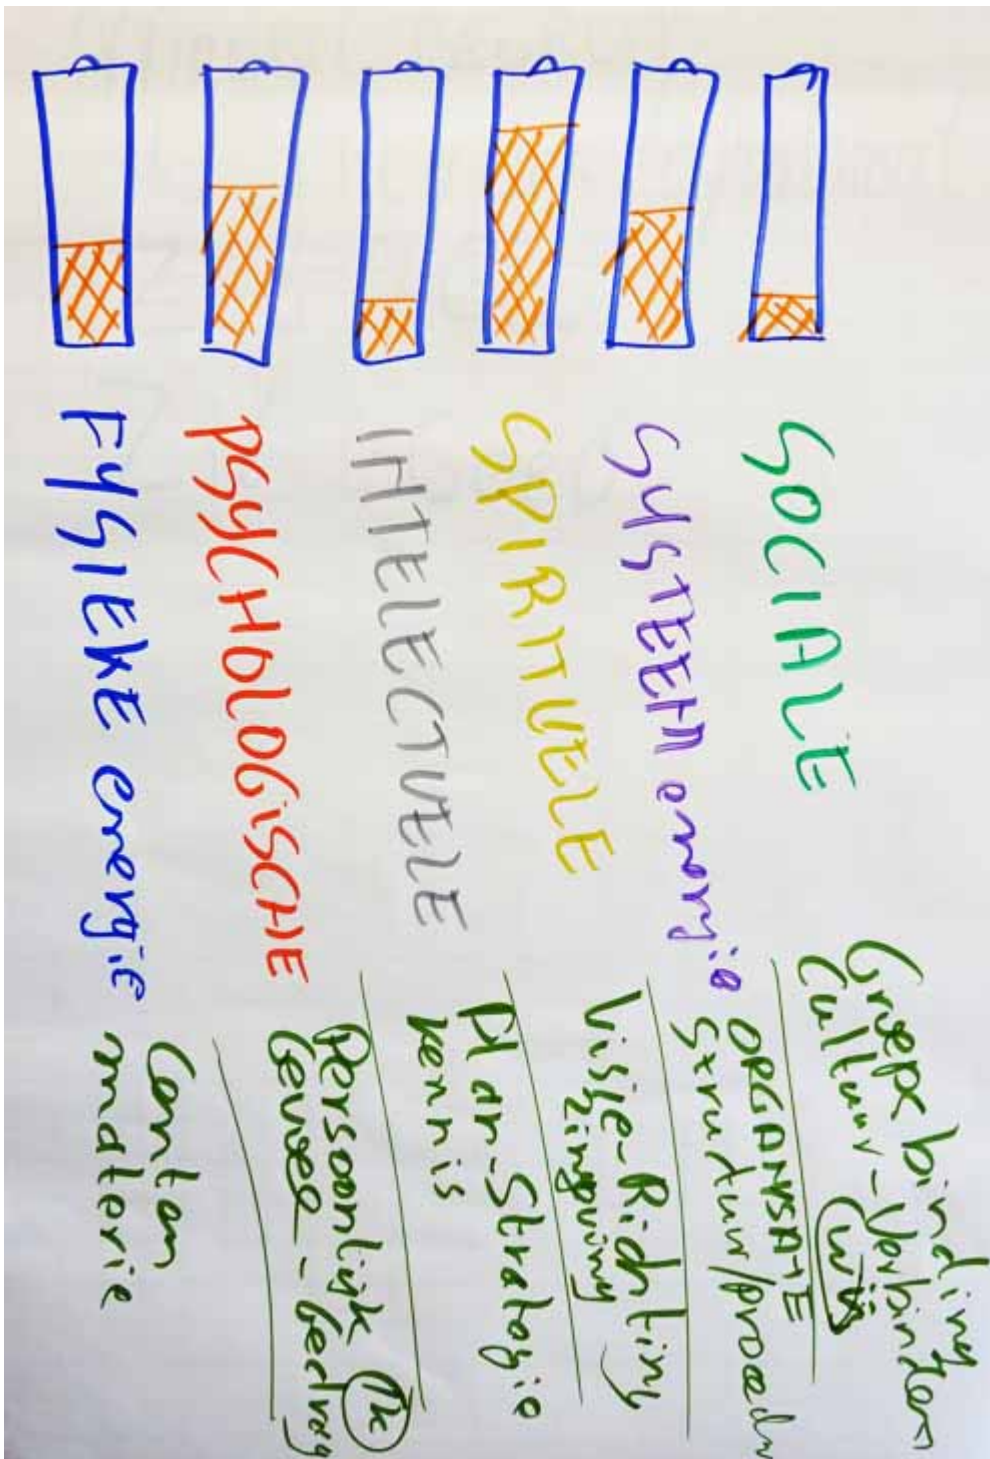 SOCIALE
Groeps binding
Cultuur - Verbinden
wij
SYSTEEM energie
ORGANISATIE
Structuur/proced
SPIRITUELE
Visie-Richting
zingeving
INTELECTUELE
Plan-Strategie
kennis
PSYCHOLOGISCHE
Persoonlijk ik
Gevoel - Gedrag
FYSIEKE energie
Centen
materie